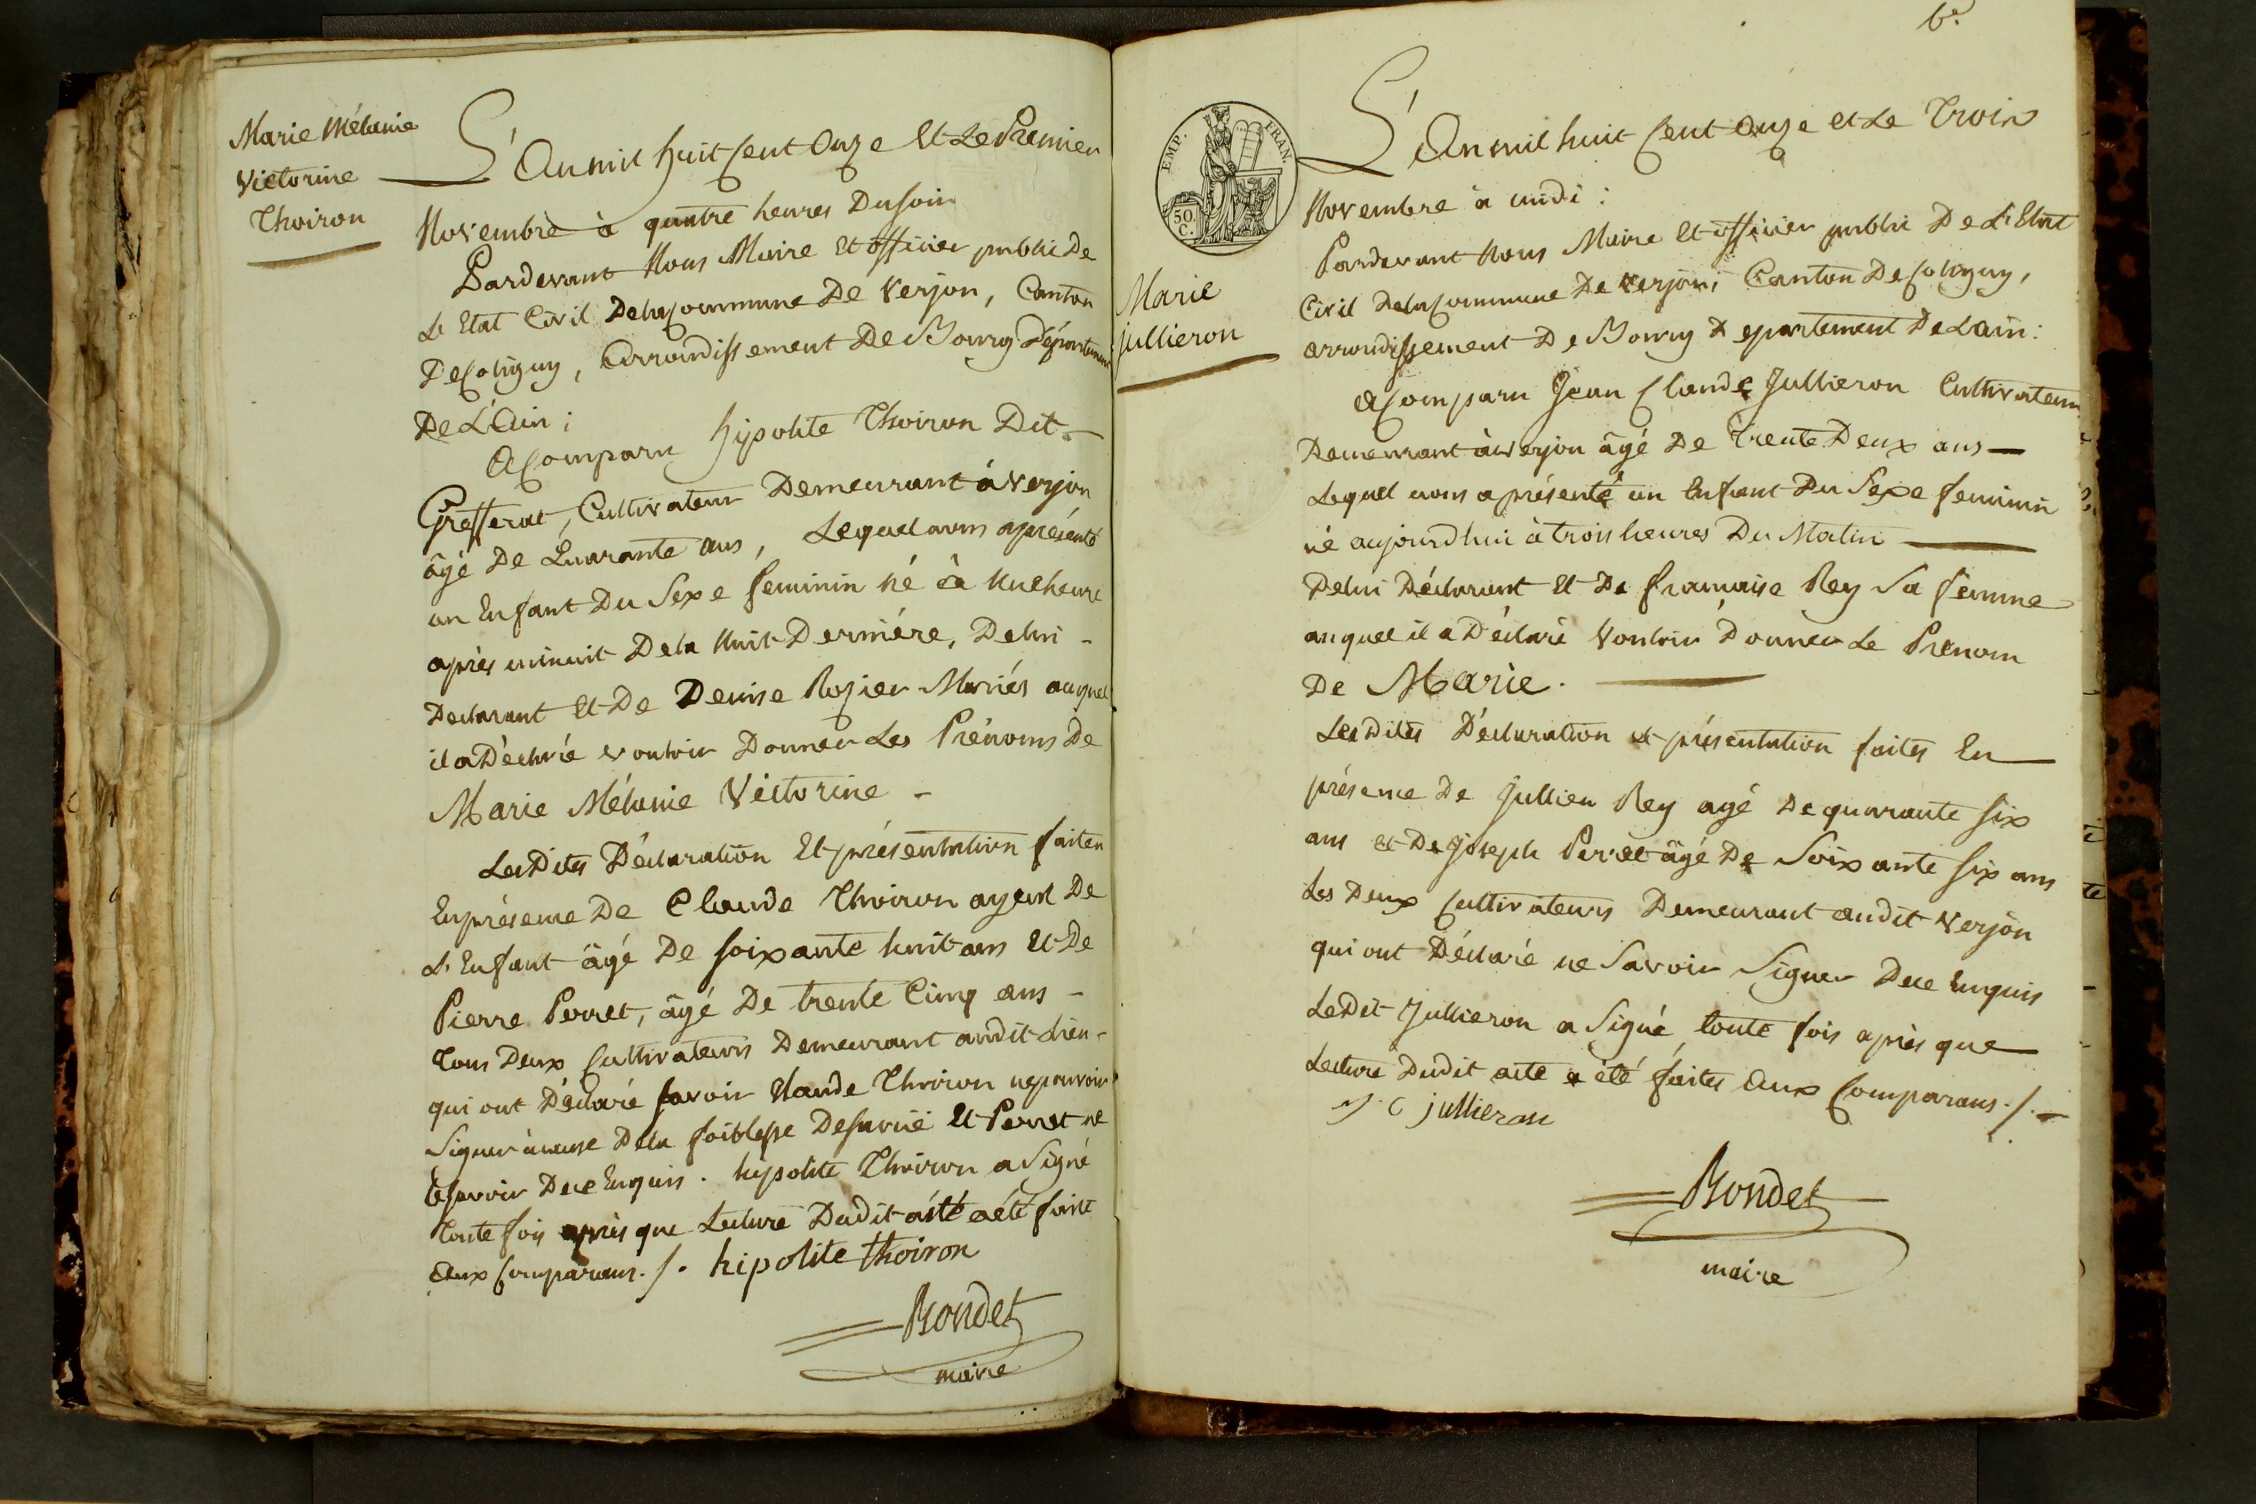 Marie Mélanie
Victorine
Thoiron
L'An mil huit cent Onze Et Le Premier
Novembre à quatre heures Du soir
Pardevant Nous Maire Et officier public De
L'Etat Civil De la Commune De Verjon, Canton
De Coligny, Arrondissement De Bourg Département
De L'Ain ;
A Comparu hipolite Thoiron Dit
Grefferat, Cultivateur Demeurant à Verjon
âgé De Quarante ans, Lequel nous a présenté
un Enfant Du Sexe feminin né à une heure
après minuit De la Nuit Dernière, De lui
Déclarant Et De Denise Rozier Mariés auquel
il a Déclaré vouloir Donner Les Prénoms De
Marie Mélanie Victorine
Les Dites Déclaration Et présentation faites
En présence De Claude Thoiron ayeul De
L'Enfant âgé De soixante huit ans Et De
Pierre Perret, âgé De trente Cinq ans
tous Deux Cultivateurs Demeurant audit Lieu
qui ont Déclaré savoir Claude Thoiron ne pouvoir
Signer à cause De la foiblesse De sa vüe Et Perret ne
le savoir De ce Enquis. hipolite Thoiron a Signé
toute fois après que Lecture Dudit acte a été faite
Aux Comparans ./. hipolite thoiron
Bondet
maire
6e.
EMP. FRAN.
50.
C.
Marie
Jullieron
L'An mil huit cent Onze et Le Trois
Novembre à midi :
Pardevant Nous Maire Et officier public De L'Etat
Civil De la Commune De Verjon, Canton De Coligny,
arrondissement De Bourg Departement De Lain :
A Comparu Jean Claude Jullieron Cultivateur
Demeurant à Verjon âgé De Trente Deux ans
Lequel nous a présenté un Enfant Du Sexe feminin
né aujourdhui à trois heures Du Matin
De lui Déclarant Et De francaise Rey Sa femme
auquel il a Déclaré Vouloir Donner Le Prenom
De Marie.
Les Dites Déclaration et présentation faites En
présence De Jullien Rey agé De quarante six
ans et De Joseph Perret âgé De Soixante six ans
Les Deux Cultivateurs Demeurant audit Verjon
qui ont Déclaré ne Savoir Signer De ce Enquis
Ledit Jullieron a Signé, toute fois après que
Lecture Dudit acte a été faites Aux Comparans ./.
J. C jullieron
Bondet
maire